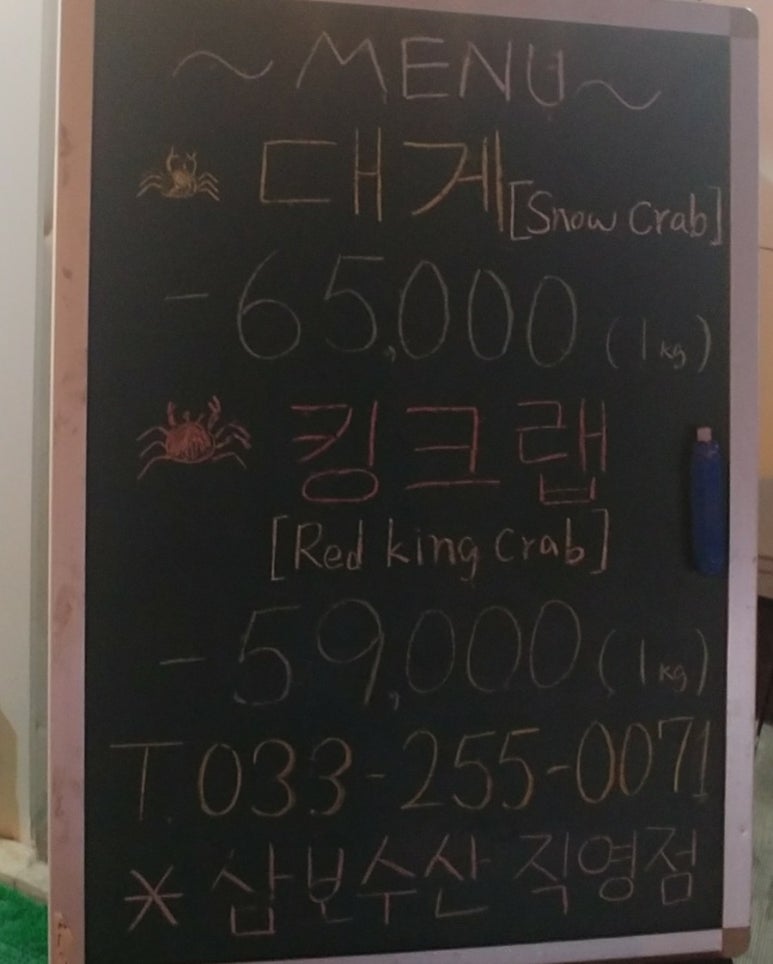 ~MENU~
대게 [Snow Crab]
-65,000 (1kg)
킹크랩
[Red king Crab]
-59,000 (1kg)
T.033-255-0071
* 삼보수산 직영점